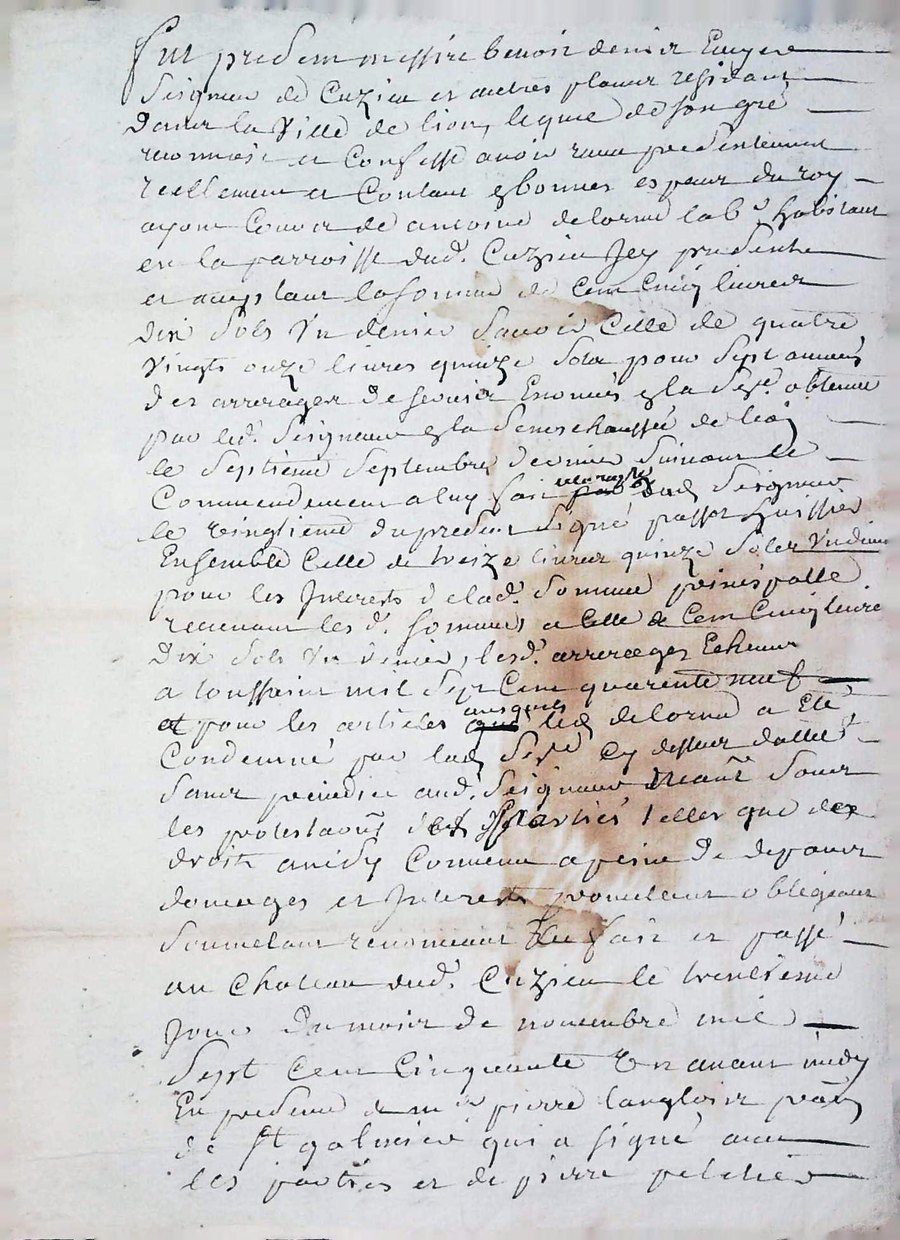 fut present messire benoit denis Ecuyer
Seigneur de Cuzieu et autres places residant
dans la Ville de lion, lequel de son gré
reconnoit et Confesse avoir receu presentement
reellement et Contant en bonnes especes du roy
ayant Cours de antoine delorme lab.r habitant
en la parroisse dud. Cuzieu Icy present
et acceptant la somme de Cent Cinq livres
dix sols Un denier Savoir Celle de quatre
Vingts onze livres quinze sols pour Sept années
des arrerages de servis Enoncés en la Sen.ce obtenue
par led. Seigneur en la Senechaussée de lion
le Septieme Septembre dernier Suivant le
Commendement a luy fait a la req.te dud Seigneur
le vingtieme du present signé passot huissier
Ensemble Celle de treize livres quinze Sols Un denier
pour les Interests de lad. Somme principalle
revenant les d. sommes a Celle de Cent Cinq livres
Dix sols Un denier, lesd. arrerages Echeus
a toussaint mil Sept Cent quarente neuf
et pour les articles auxquels led delorme a Eté
Condemné par lad Sen.ce Cy dessus dattée
Sans prejudice aud. Seigneur Sous
les protestaons des parties telles que de
droit ainsy Convenu a peine de depans
domages et Interests promettant obligeant
Soumetant renonceant fait et passé
au Chateau dud. Cuzieu le trentieme
Jour du mois de novembre mil
Sept Cent Cinquante Un avant midy
En presence de m.re pierre langlois
de St galmier qui a signé avec
les parties et de pierre peletier